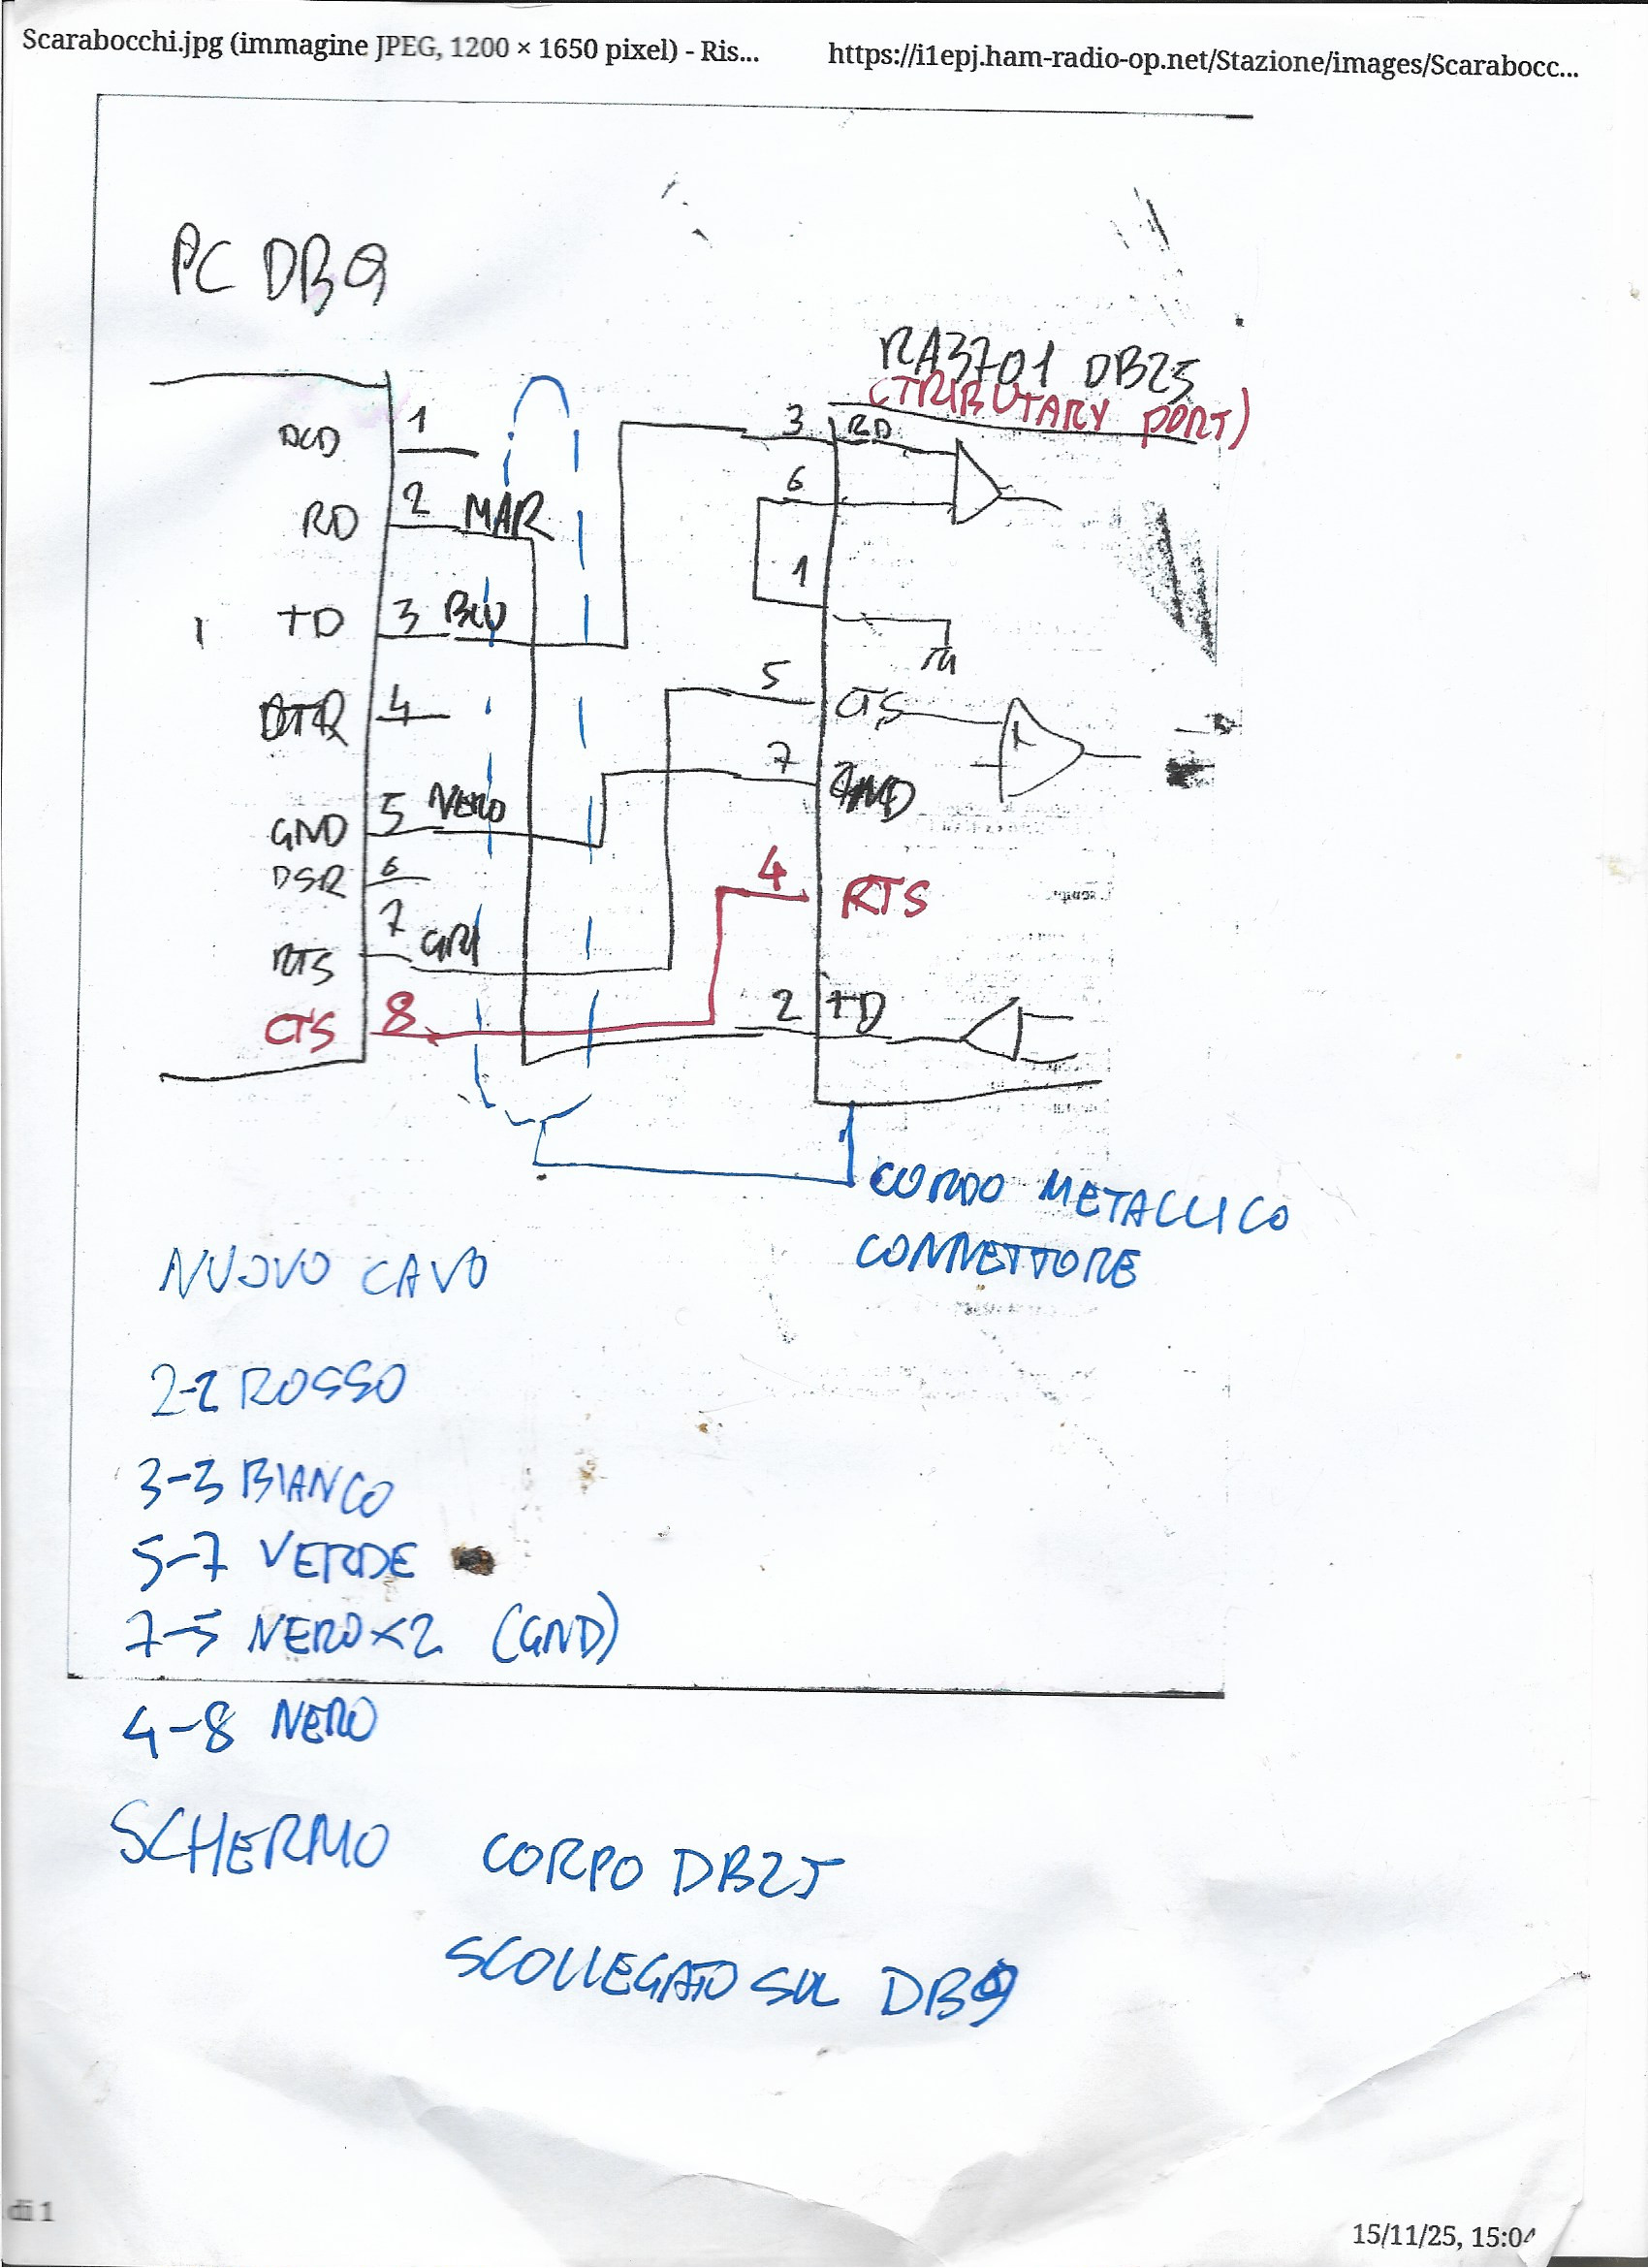 Scarabocchi.jpg (immagine JPEG, 1200 × 1650 pixel) - Ris... https://i1epj.ham-radio-op.net/Stazione/images/Scarabocc...
PC DB9
RA3701 DB25
(TRIBUTARY PORT)
DCD 1
3 RD
RD 2 MAR
6
1
TD 3 BLU
5 CTS
DTR 4
7 GND
GND 5 NERO
DSR 6
4 RTS
RTS 7 GRI
CTS 8
2 TD
CORDO METALLICO
CONNETTORE
NUOVO CAVO
2-2 ROSSO
3-3 BIANCO
5-7 VERDE
7-5 NERO×2 (GND)
4-8 NERO
SCHERMO CORPO DB25
SCOLLEGATO SUL DB9
di 1
15/11/25, 15:04